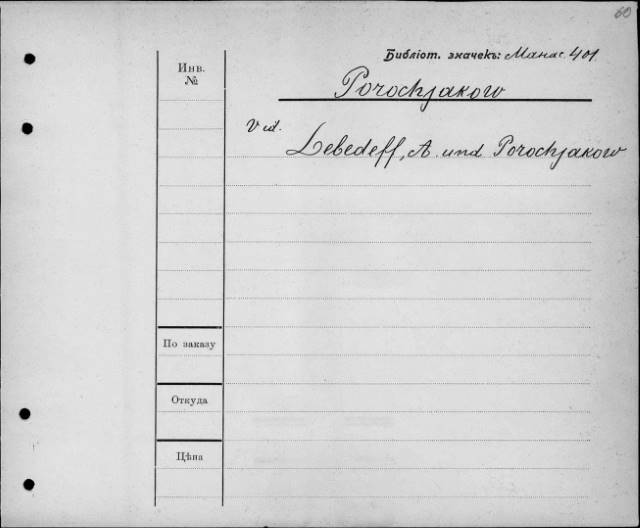 60
Библіот. значекъ: Манас. 401.
Инв.
№
Porochjakow
Vid.
Lebedeff, A. und Porochjakow
По заказу
Откуда
Цѣна